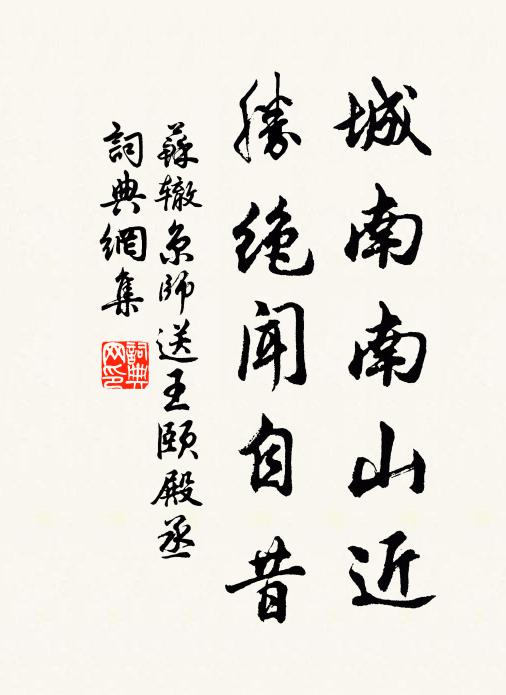 城南南山近
勝絕聞自昔
蘇轍京師送王頤殿丞
詞典網集
詞典网印